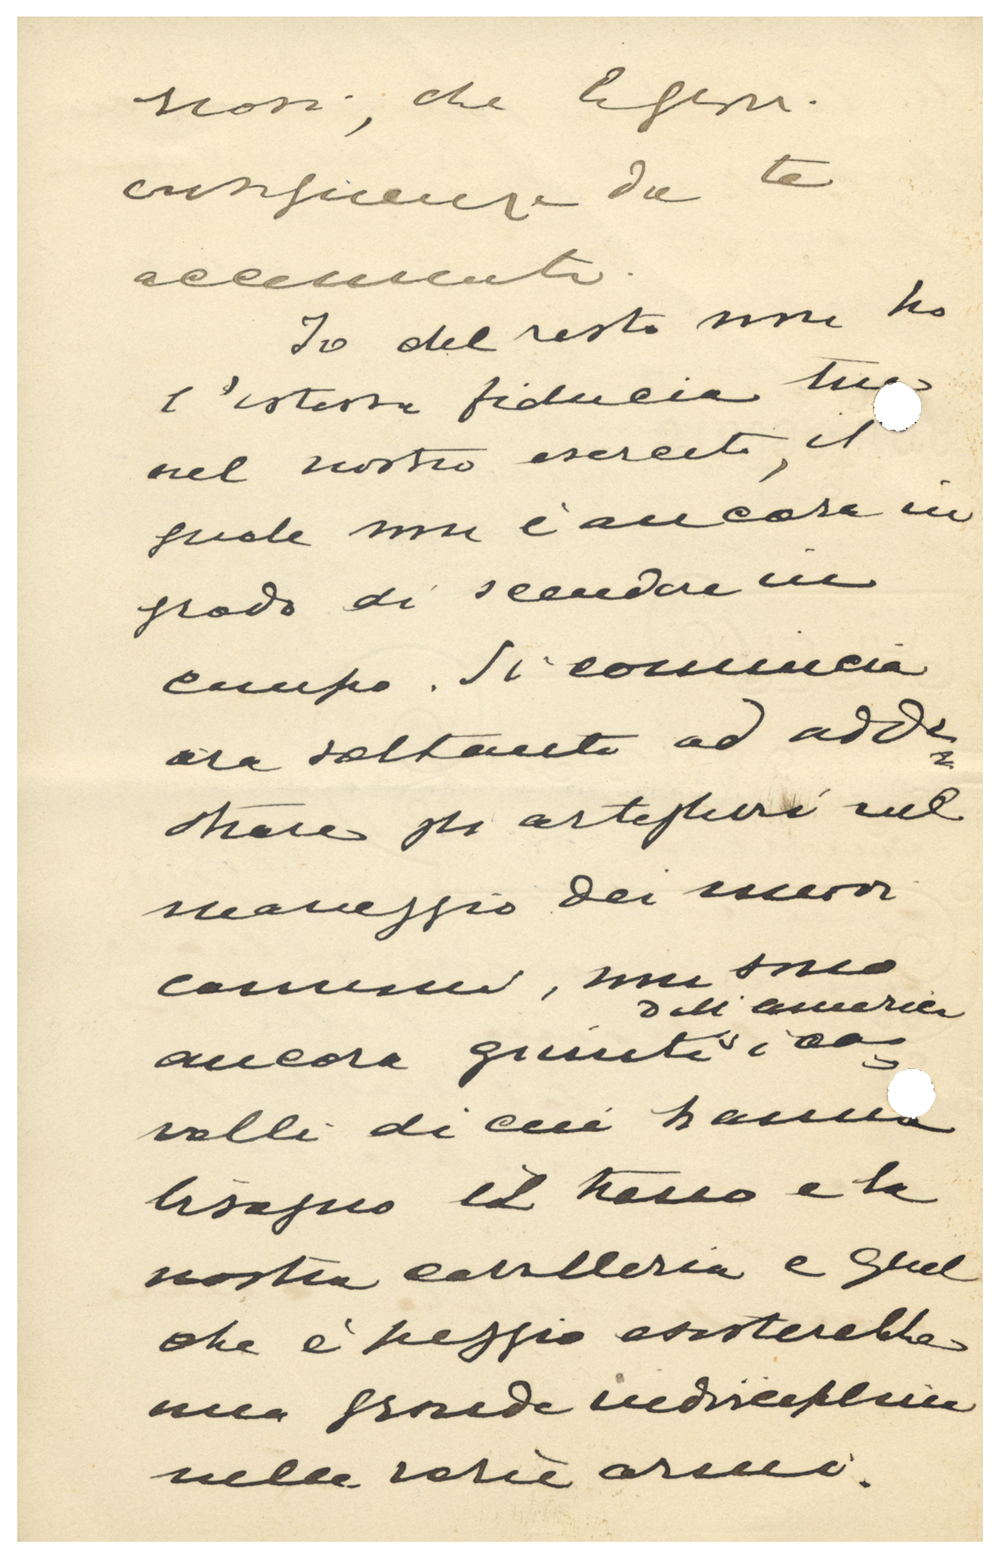 che
conseguenza da te
accennata.
Io del resto non ho
l'istessa fiducia tua
nel nostro esercito, il
quale non è ancora in
grado di scendere in
campo. Si comincia
ora soltanto ad adde=
strare gli artiglieri nel
maneggio dei nuovi
cannoni, non sono
dall'america
ancora giunti i ca=
valli di cui hanno
bisogno il treno e la
nostra cavalleria e quel
che è peggio esisterebbe
una grande indisciplina
nelle varie armi.